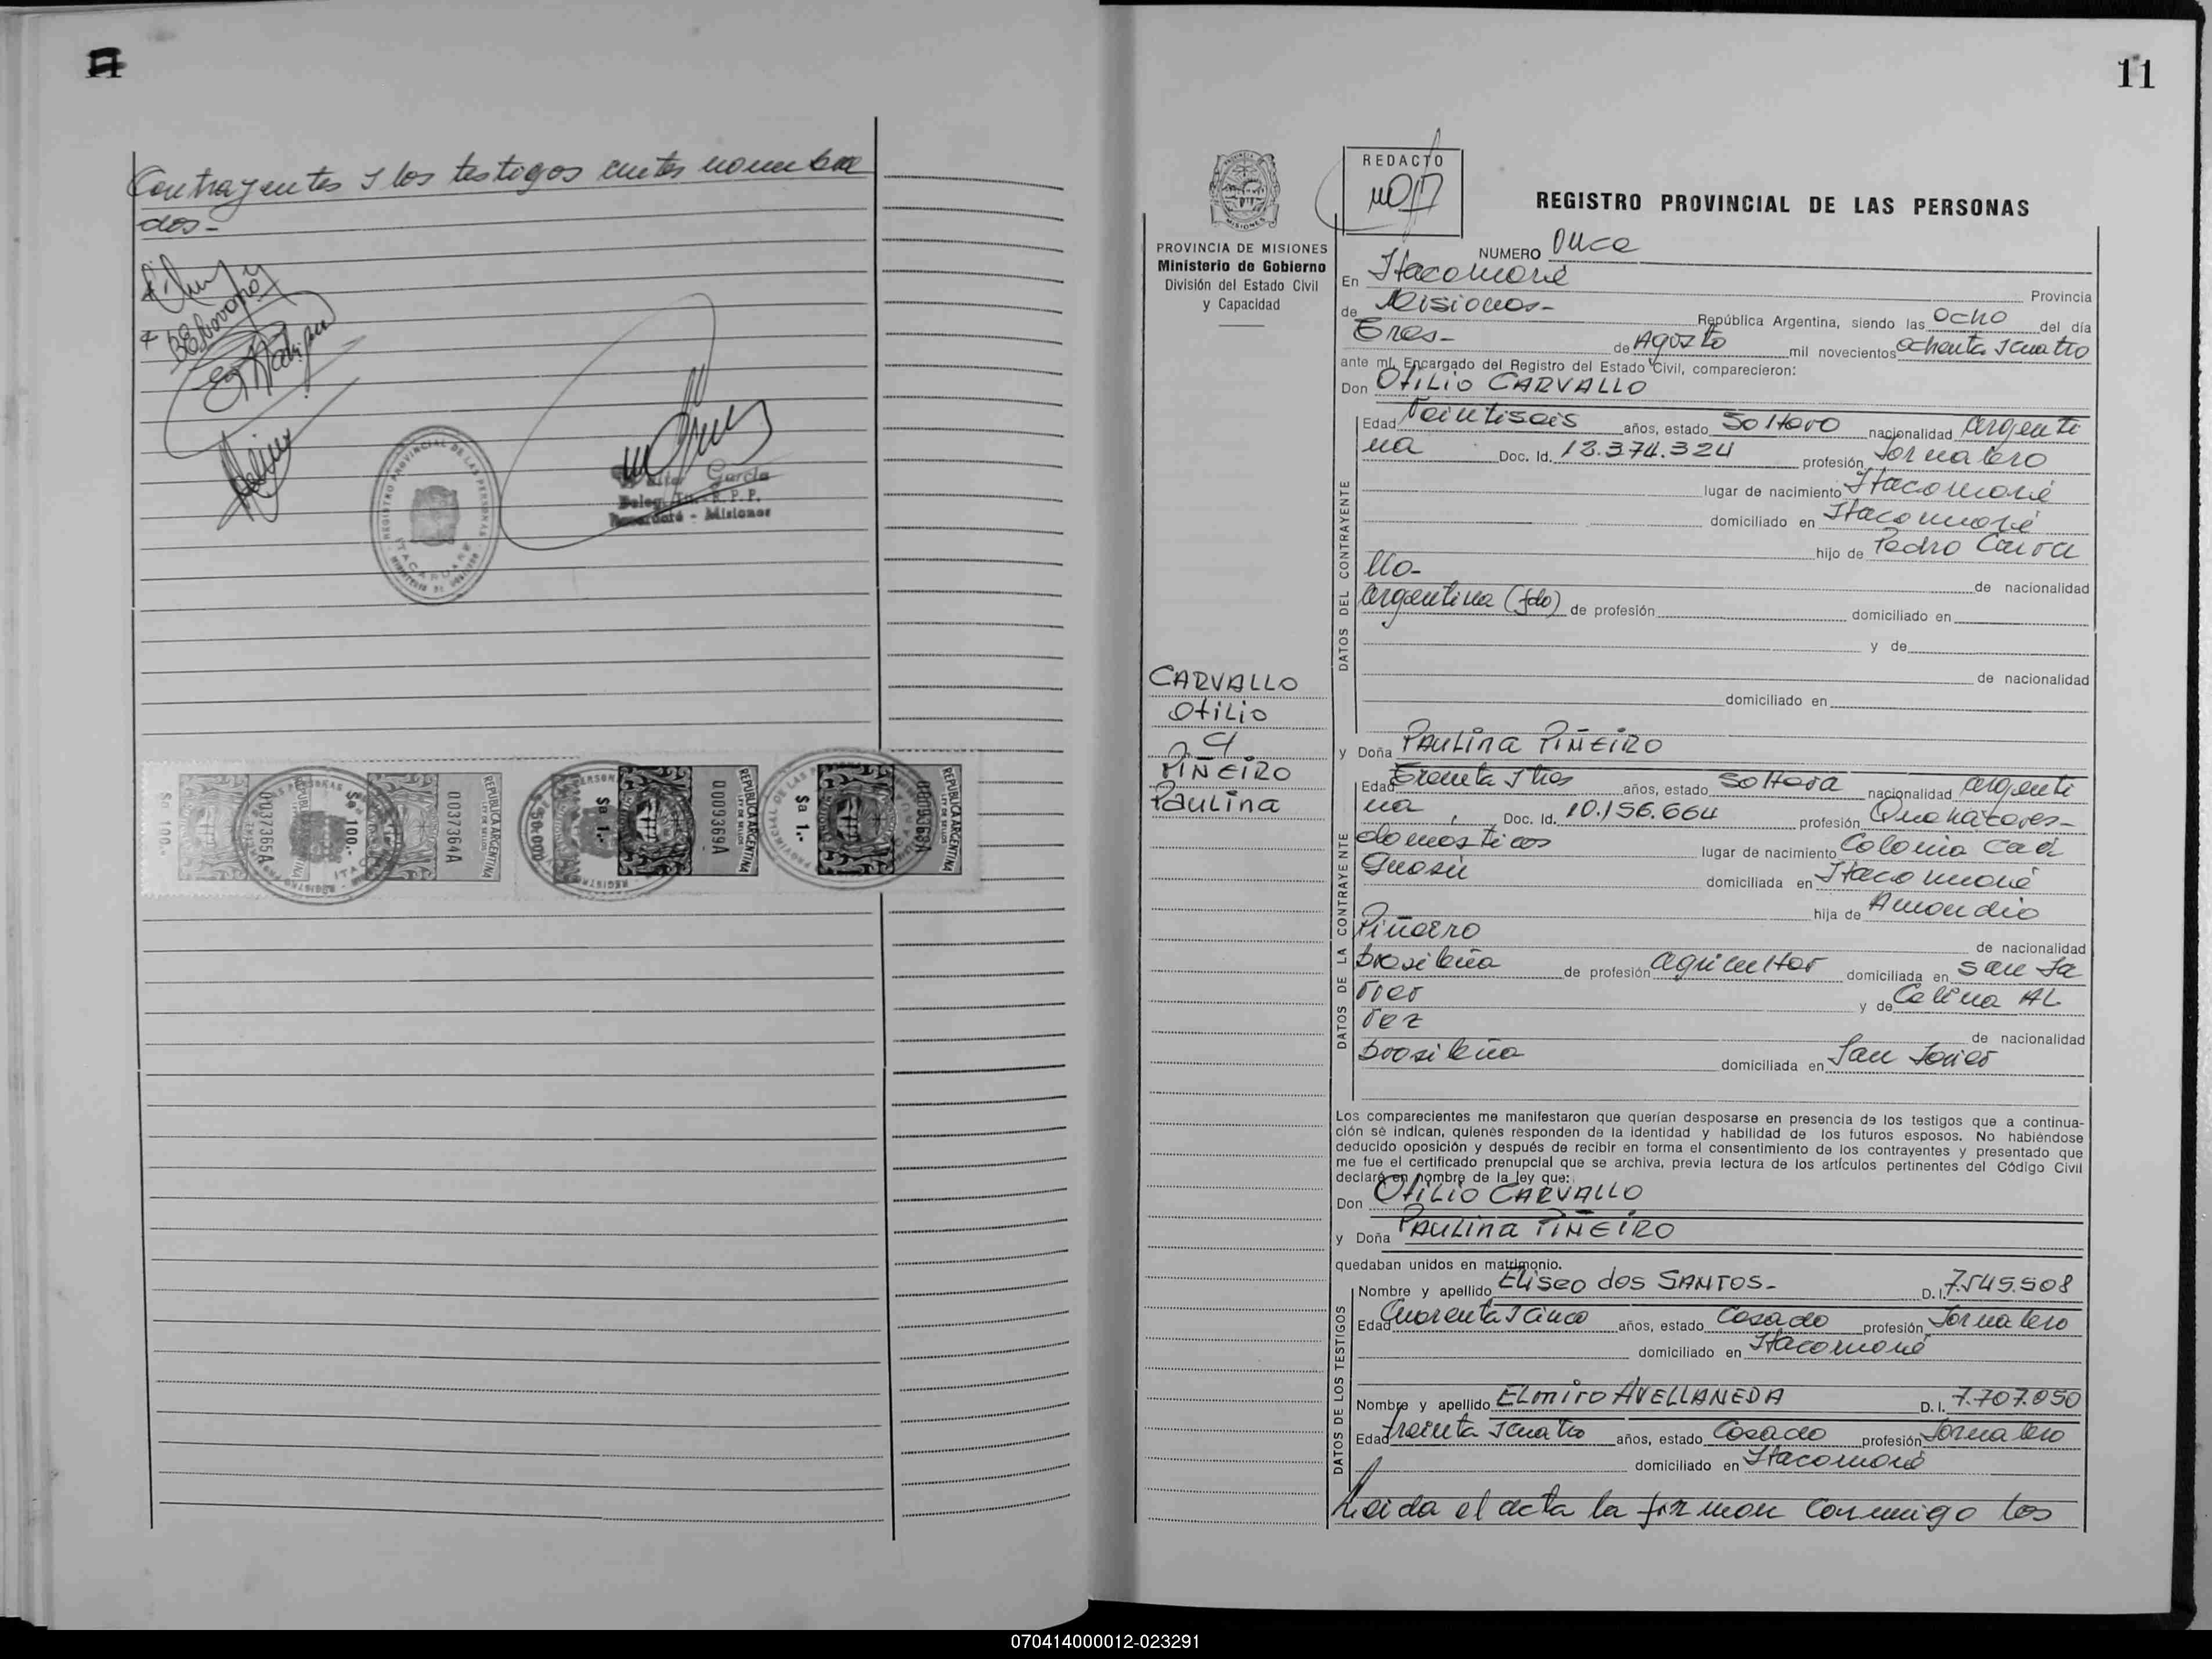 Contrayentes y los testigos antes nombra
dos-
REGISTRO PROVINCIAL DE LAS PERSONAS
ITACARUARE
Walter García
Deleg. Tit. R. P. P.
Itacaruaré - Misiones
$a 100.-
0037365A
REPUBLICA ARGENTINA
LEY DE SELLOS
$a 100.-
0037364A
REPUBLICA ARGENTINA
LEY DE SELLOS
$ 50.000
$a 1.-
0009369A
REPUBLICA ARGENTINA
LEY DE SELLOS
$a 1.-
REPUBLICA ARGENTINA
LEY DE SELLOS
11
REDACTO
PROVINCIA DE MISIONES
Ministerio de Gobierno
División del Estado Civil
y Capacidad
REGISTRO PROVINCIAL DE LAS PERSONAS
NUMERO Once
En Itacaruaré
Provincia
de Misiones-
República Argentina, siendo las ocho del día
Tres- de Agosto mil novecientos ochenta y cuatro
ante mí, Encargado del Registro del Estado Civil, comparecieron:
Don Otilio CARVALLO
DATOS DEL CONTRAYENTE
Edad Veintiseis años, estado soltero nacionalidad argenti
na Doc. Id. 12.374.324 profesión Jornalero
lugar de nacimiento Itacaruaré
domiciliado en Itacaruaré
hijo de Pedro Carva
llo- de nacionalidad
argentina (fdo) de profesión domiciliado en
y de
de nacionalidad
domiciliado en
CARVALLO
Otilio
y
PIÑEIRO
Paulina
y Doña Paulina PIÑEIRO
DATOS DE LA CONTRAYENTE
Edad Treinta y tres años, estado soltera nacionalidad argenti
na, Doc. Id. 10.156.664 profesión Quehaceres-
domesticos lugar de nacimiento Colonia Caá
Guasú domiciliada en Itacaruaré
hija de Amandio
Piñeiro de nacionalidad
brasileña de profesión agricultor domiciliada en San Ja
vier y de Celina AL
vez de nacionalidad
brasileña domiciliada en San Javier
Los comparecientes me manifestaron que querían desposarse en presencia de los testigos que a continua-
ción se indican, quienes responden de la identidad y habilidad de los futuros esposos. No habiéndose
deducido oposición y después de recibir en forma el consentimiento de los contrayentes y presentado que
me fue el certificado prenupcial que se archiva, previa lectura de los artículos pertinentes del Código Civil
declaré en nombre de la ley que:
Don Otilio CARVALLO
y Doña Paulina PIÑEIRO
quedaban unidos en matrimonio.
DATOS DE LOS TESTIGOS
Nombre y apellido Eliseo dos SANTOS- D. I. 7.545.508
Edad Cuarenta y cinco años, estado Casado profesión Jornalero
domiciliado en Itacaruaré
Nombre y apellido Elmiro AVELLANEDA D. I. 7.707.050
Edad treinta y cuatro años, estado Casado profesión Jornalero
domiciliado en Itacaruaré
Leida el acta la firman conmigo los
070414000012-023291